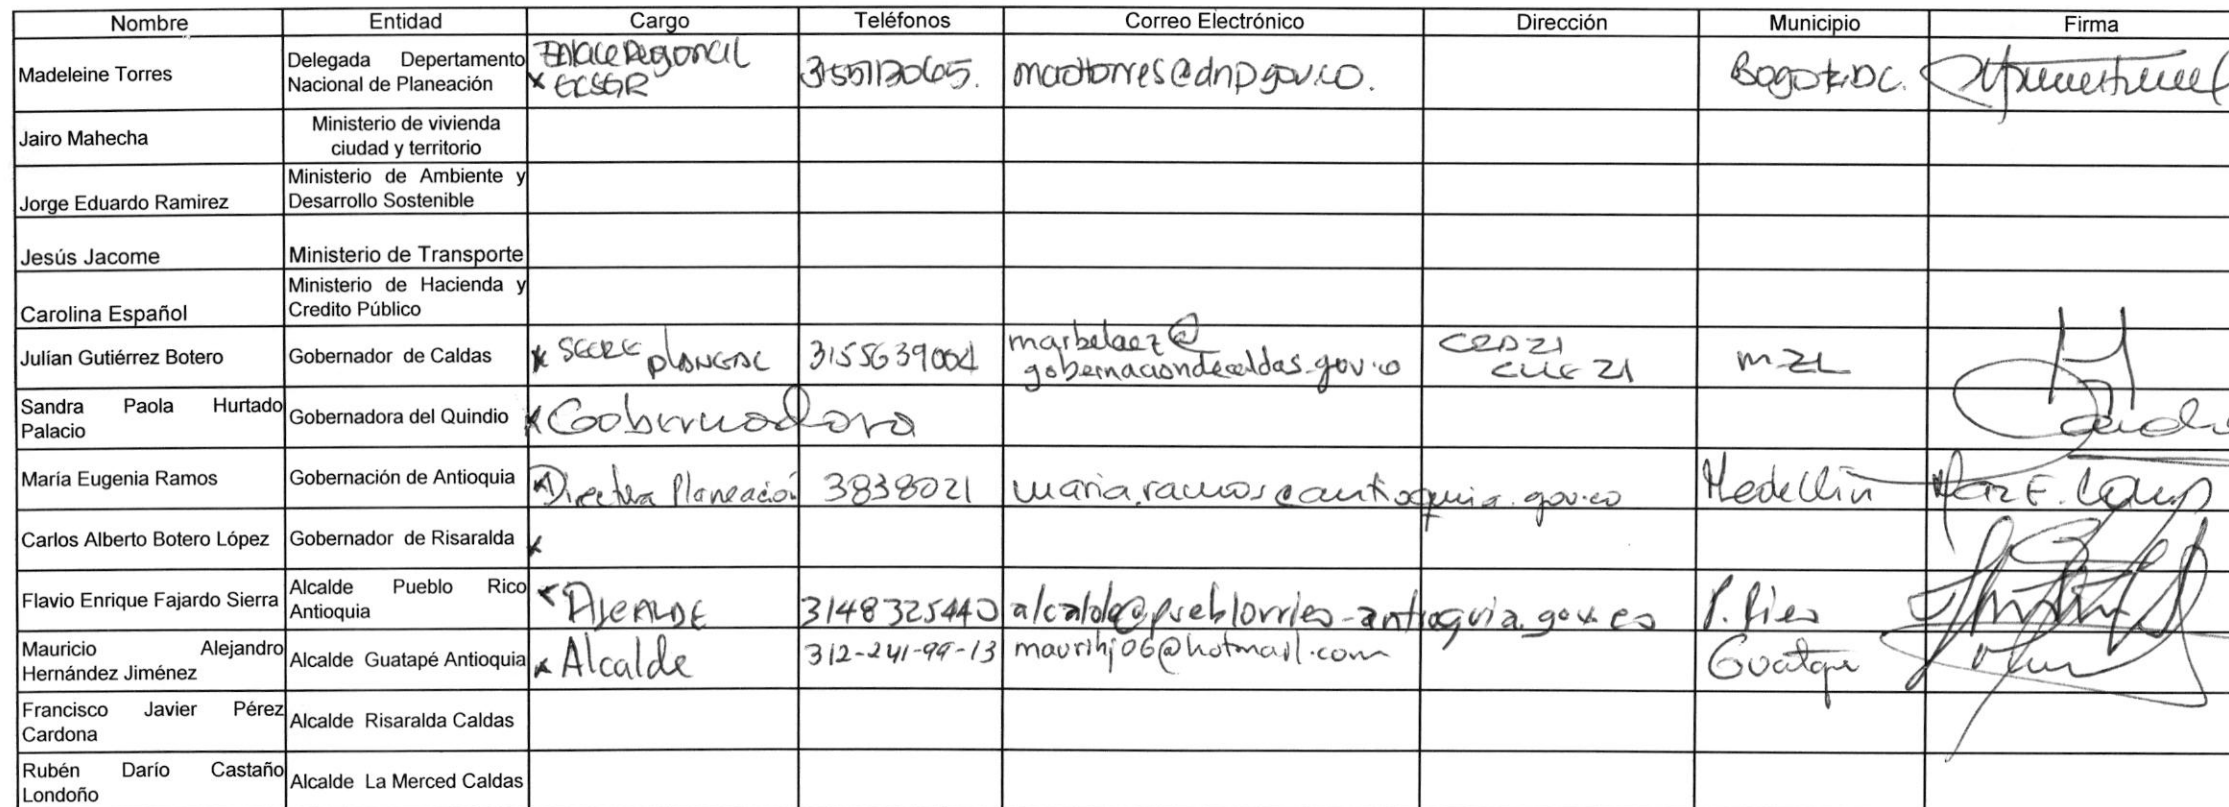 Nombre Entidad Cargo Teléfonos Correo Electrónico Dirección Municipio Firma
Madeleine Torres
Delegada Depertamento
Nacional de Planeación
Enlace Regional
x ECSGR
madtorres@dnp.gov.co.
Jairo Mahecha
Ministerio de vivienda
ciudad y territorio
Jorge Eduardo Ramirez
Ministerio de Ambiente y
Desarrollo Sostenible
Jesús Jacome
Ministerio de Transporte
Carolina Español
Ministerio de Hacienda y
Credito Público
Julían Gutiérrez Botero
Gobernador de Caldas
x SECRE
planeac
3155639004
marbelaez@
gobernaciondecaldas.gov.co
MZL
Sandra Paola Hurtado
Palacio
Gobernadora del Quindio
x Gobernadora
María Eugenia Ramos
Gobernación de Antioquia
x Directora Planeación
3838021
maria.ramos@antioquia.gov.co
Medellín
Carlos Alberto Botero López
Gobernador de Risaralda
x
Flavio Enrique Fajardo Sierra
Alcalde Pueblo Rico
Antioquia
x Alcalde
3148325440
alcalde@pueblorrico-antioquia.gov.co
P. Rico
Mauricio Alejandro
Hernández Jiménez
Alcalde Guatapé Antioquia
x Alcalde
312-241-99-13
maurihj06@hotmail.com
Guatape
Francisco Javier Pérez
Cardona
Alcalde Risaralda Caldas
Rubén Darío Castaño
Londoño
Alcalde La Merced Caldas